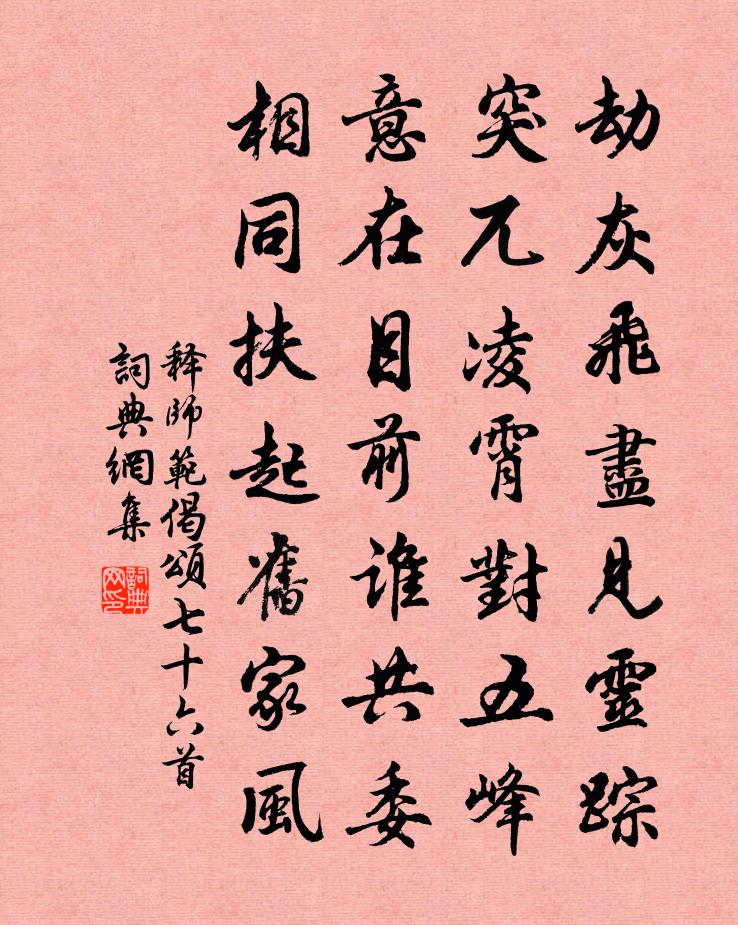 劫灰飛盡見靈踪
突兀凌霄對五峰
意在目前谁共委
相同扶起舊家風
释師範偈頌七十六首
詞典網集
詞典
网印